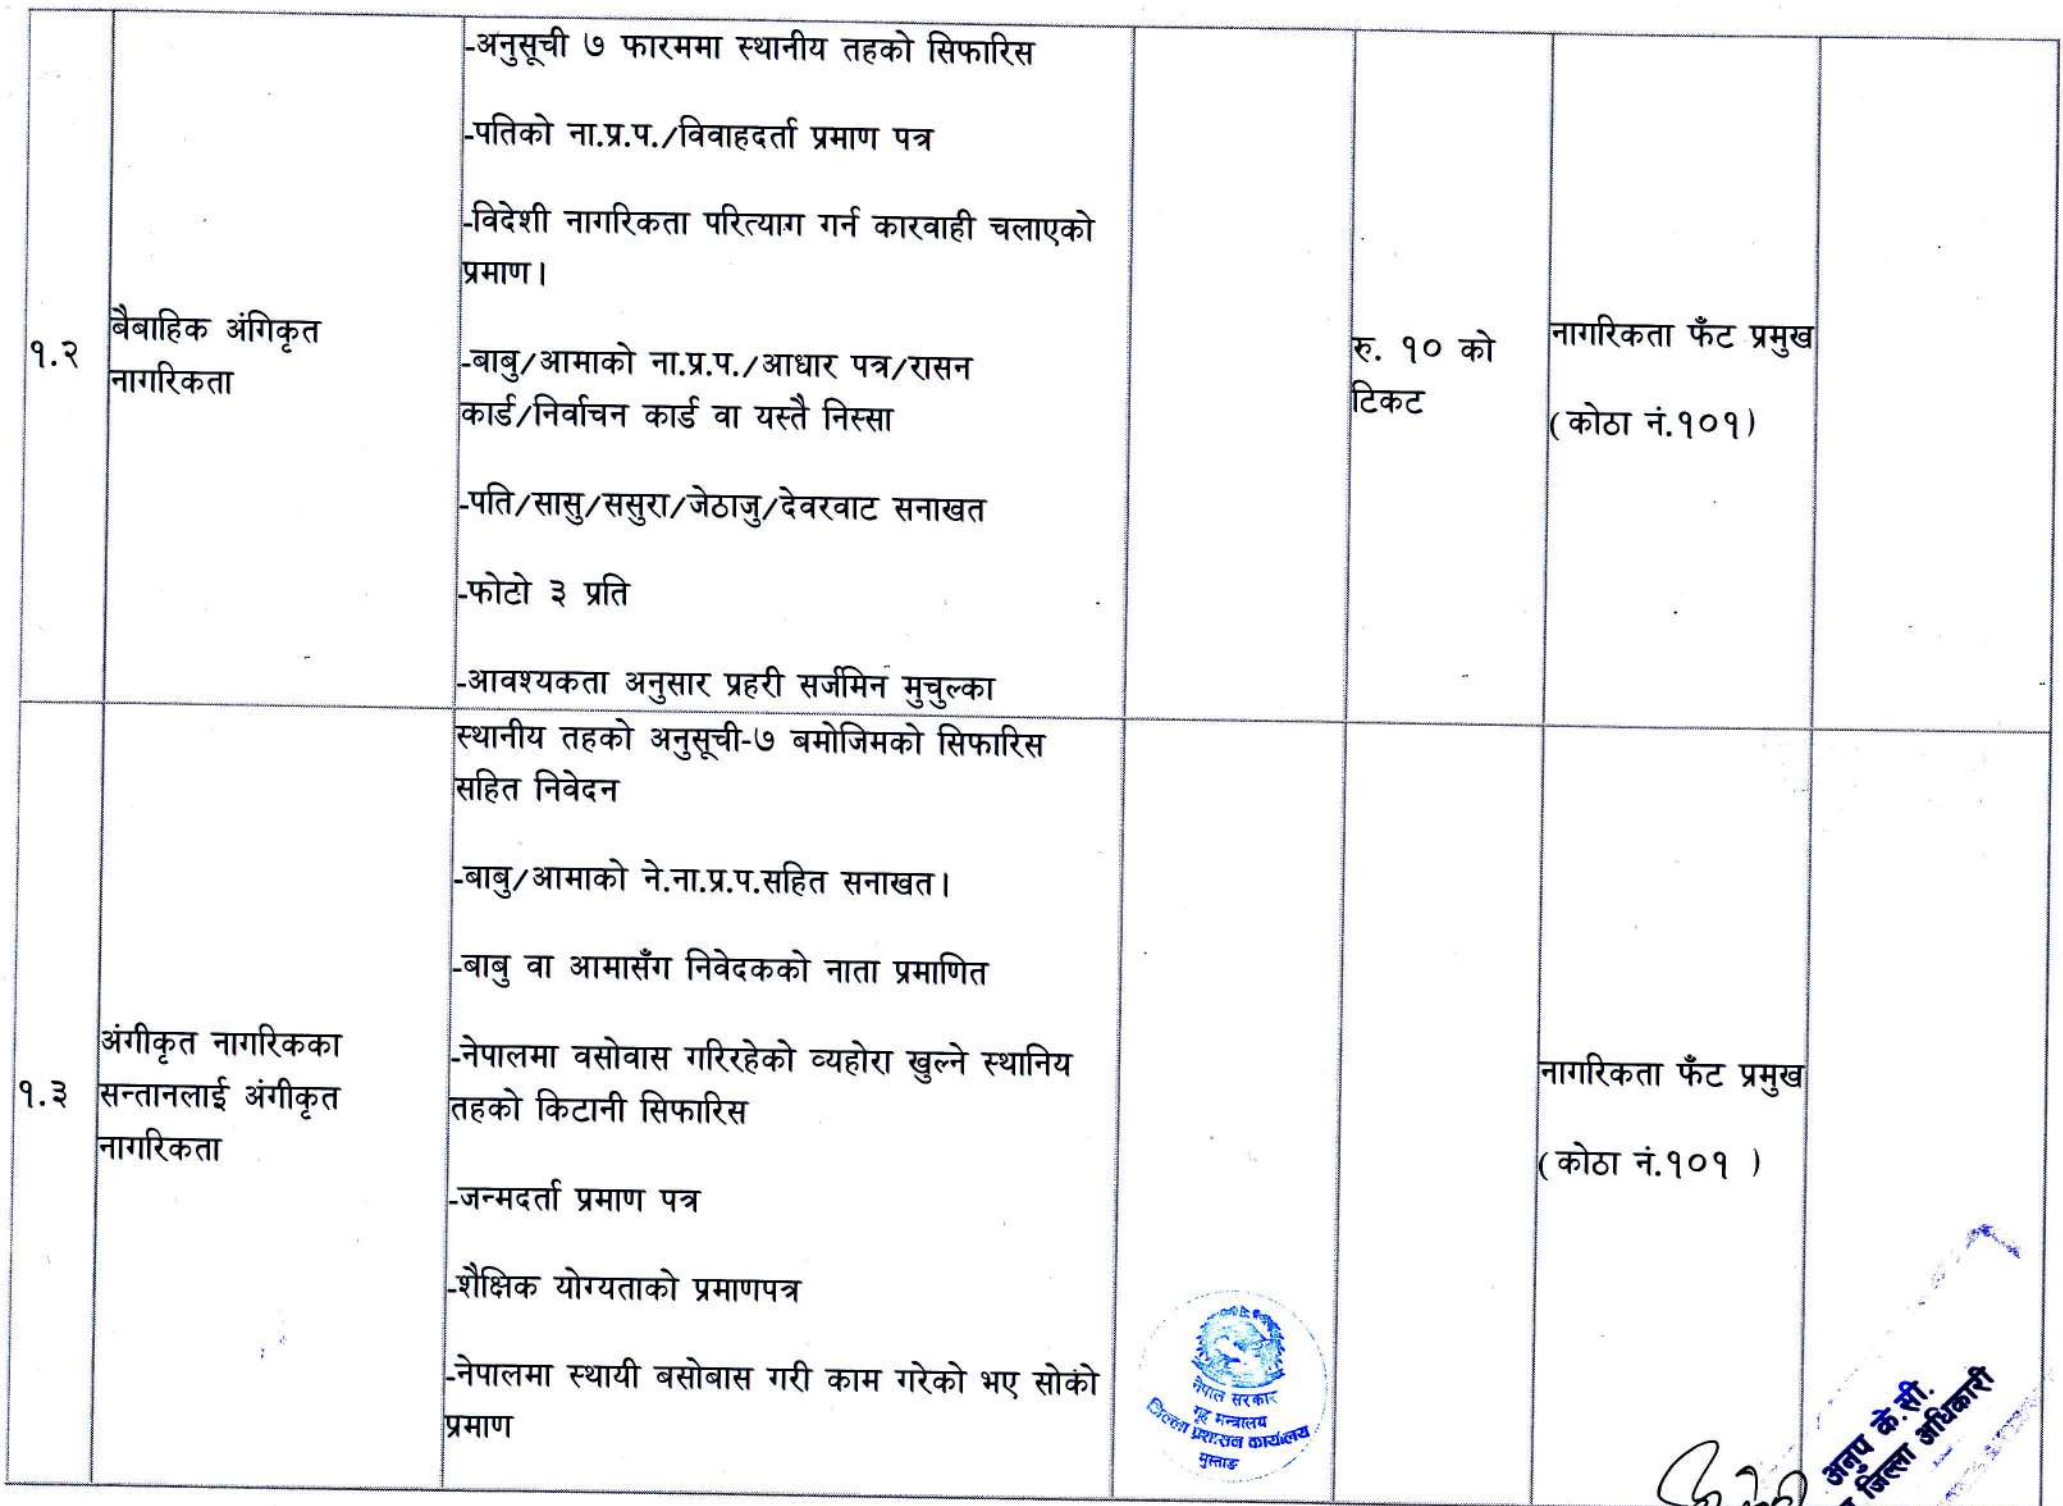 -अनुसूची ७ फारममा स्थानीय तहको सिफारिस
-पतिको ना.प्र.प./विवाहदर्ता प्रमाण पत्र
-विदेशी नागरिकता परित्याग गर्न कारवाही चलाएको
प्रमाण।
१.२
बैबाहिक अंगिकृत
नागरिकता
-बाबु/आमाको ना.प्र.प./आधार पत्र/रासन
कार्ड/निर्वाचन कार्ड वा यस्तै निस्सा
-पति/सासु/ससुरा/जेठाजु/देवरवाट सनाखत
-फोटो ३ प्रति
-आवश्यकता अनुसार प्रहरी सर्जमिन मुचुल्का
रु. १० को
टिकट
नागरिकता फँट प्रमुख
(कोठा नं.१०१)
स्थानीय तहको अनुसूची-७ बमोजिमको सिफारिस
सहित निवेदन
-बाबु/आमाको ने.ना.प्र.प.सहित सनाखत।
-बाबु वा आमासँग निवेदकको नाता प्रमाणित
१.३
अंगीकृत नागरिकका
सन्तानलाई अंगीकृत
नागरिकता
-नेपालमा वसोवास गरिरहेको व्यहोरा खुल्ने स्थानिय
तहको किटानी सिफारिस
-जन्मदर्ता प्रमाण पत्र
-शैक्षिक योग्यताको प्रमाणपत्र
-नेपालमा स्थायी बसोबास गरी काम गरेको भए सोको
प्रमाण
नागरिकता फँट प्रमुख
(कोठा नं.१०१ )
नेपाल सरकार
गृह मन्त्रालय
जिल्ला प्रशासन कार्यालय
मुस्ताङ
अनुप के.सी.
जिल्ला अधिकारी